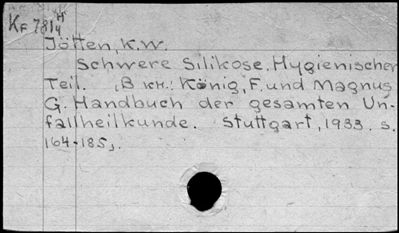 KF 781 H/4
Jötten, K.W.
Schwere Silikose. Hygienischer
Teil. „В кн.: König, F. und Magnus
G. Handbuch der gesamten Un-
fallheilkunde. Stuttgart, 1933. S.
164-185„.